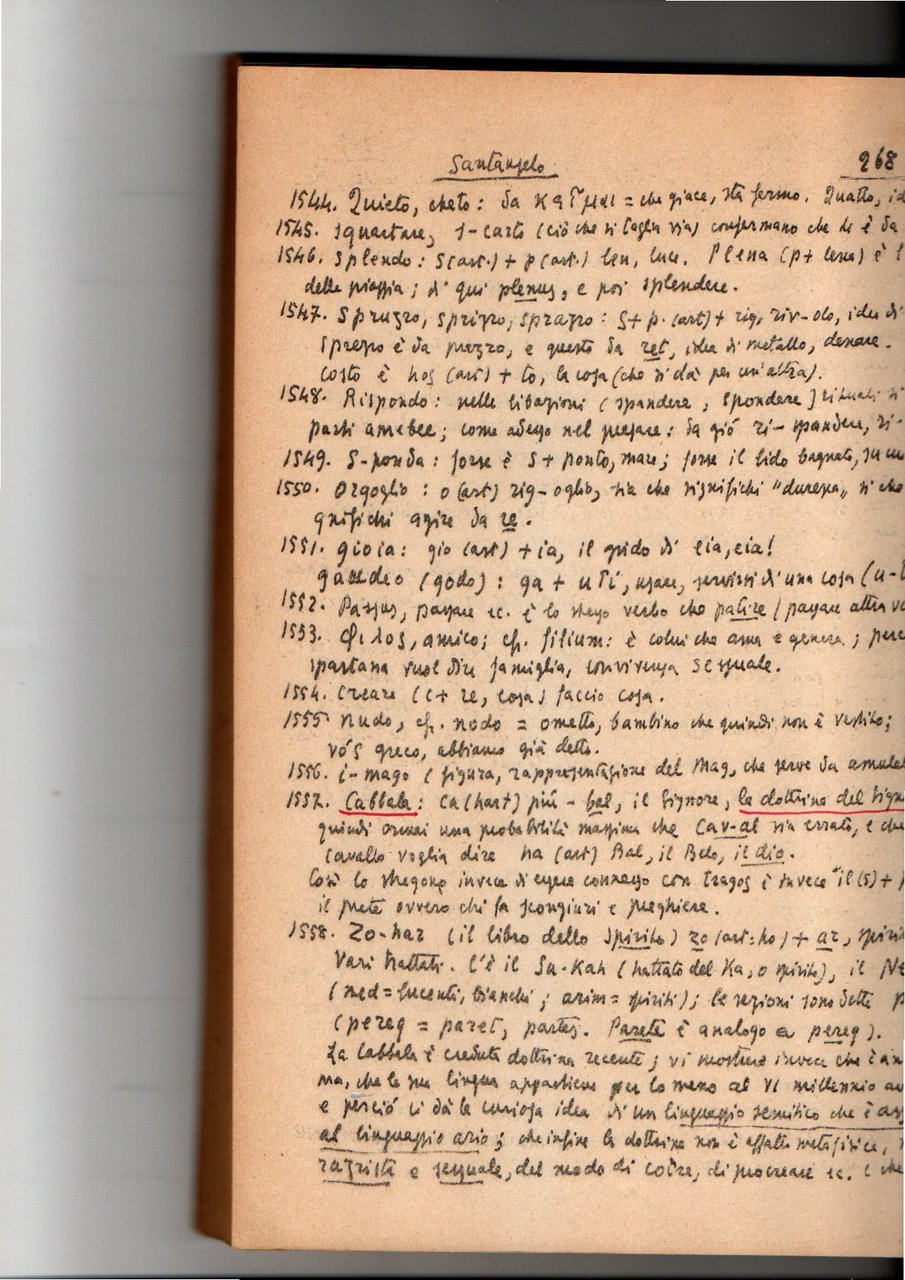 Santangelo
268
1544. Quieto, cheto: da κεῖμαι = che giace, sta fermo. Quatto, id
1545. squartare, s-carto (ciò che si taglia via) confermano che è da
1546. Splendo: S(art.) + p(art.) len, luce. Plena (p + lena) è l
della pioggia; di qui plenus, e poi splendere.
1547. Spruzzo, sprizzo, sprazzo: S + p.(art) + rig, riv-olo, idea di
Sprezzo è da prezzo, e questo da ret, idea di metallo, denaro.
Costo è hos (art) + to, la cosa (che si dà per un'altra).
1548. Rispondo: nelle libazioni (spandere, spondere) rituali si
parti amebee; come adesso nel pregare: da giò ri-spandere, ri-
1549. S-ponda: forse è S + ponto, mare; forse il lido bagnato, su cu
1550. Orgoglio: o (art) rig-oglio, sia che significhi "durezza" si che
gnifichi agire da re.
1551. gioia: gio (art) + ia, il grido di eia, eia!
gaudeo (godo): ga + uti, usare, servirsi d'una cosa (u-t
1552. Passus, passare ec. è lo stesso verbo che patire (passare attra ve
1553. Φιλος, amico; cfr. filium: è colui che ama e genera; perc
spartana vuol dire famiglia, convivenza sessuale.
1554. Creare (c + re, cosa) faccio cosa.
1555. nudo, cfr. nodo = ometto, bambino che quindi non è vestito;
vós greco, abbiamo già detto.
1556. i-mago (figura, rappresentazione del Mag, che serve da amulet
1557. Cabbala: ca (hart) più - bal, il Signore, la dottrina del Sign
quindi ormai una probabilità massima che Cav-al sia errato, e che
Cavallo voglia dire ha (art) Bal, il Belo, il dio.
Così lo stregone invece di essere connesso con tragos è invece "il (S) + p
il prete ovvero chi fa scongiuri e preghiere.
1558. Zo-har (il libro dello spirito) zo (art: ho) + ar, spiri
Vari trattati. C'è il Su-Kah (trattato del Ka, o spirito), il Ne
(ned = lucenti, bianchi; arim = spiriti); le sezioni sono dette p
(pereq = paret, partes. Parete è analogo a pereq).
La Cabbala è creduta dottrina recente; vi mostrerò invece che è an
ma, che la sua lingua appartiene per lo meno al VI millennio av
e perciò ci dà la curiosa idea di un linguaggio semitico che è as
al linguaggio ario; che infine la dottrina non è affatto metafisica,
razzista e sessuale, del modo di coire, di procreare ec. E che